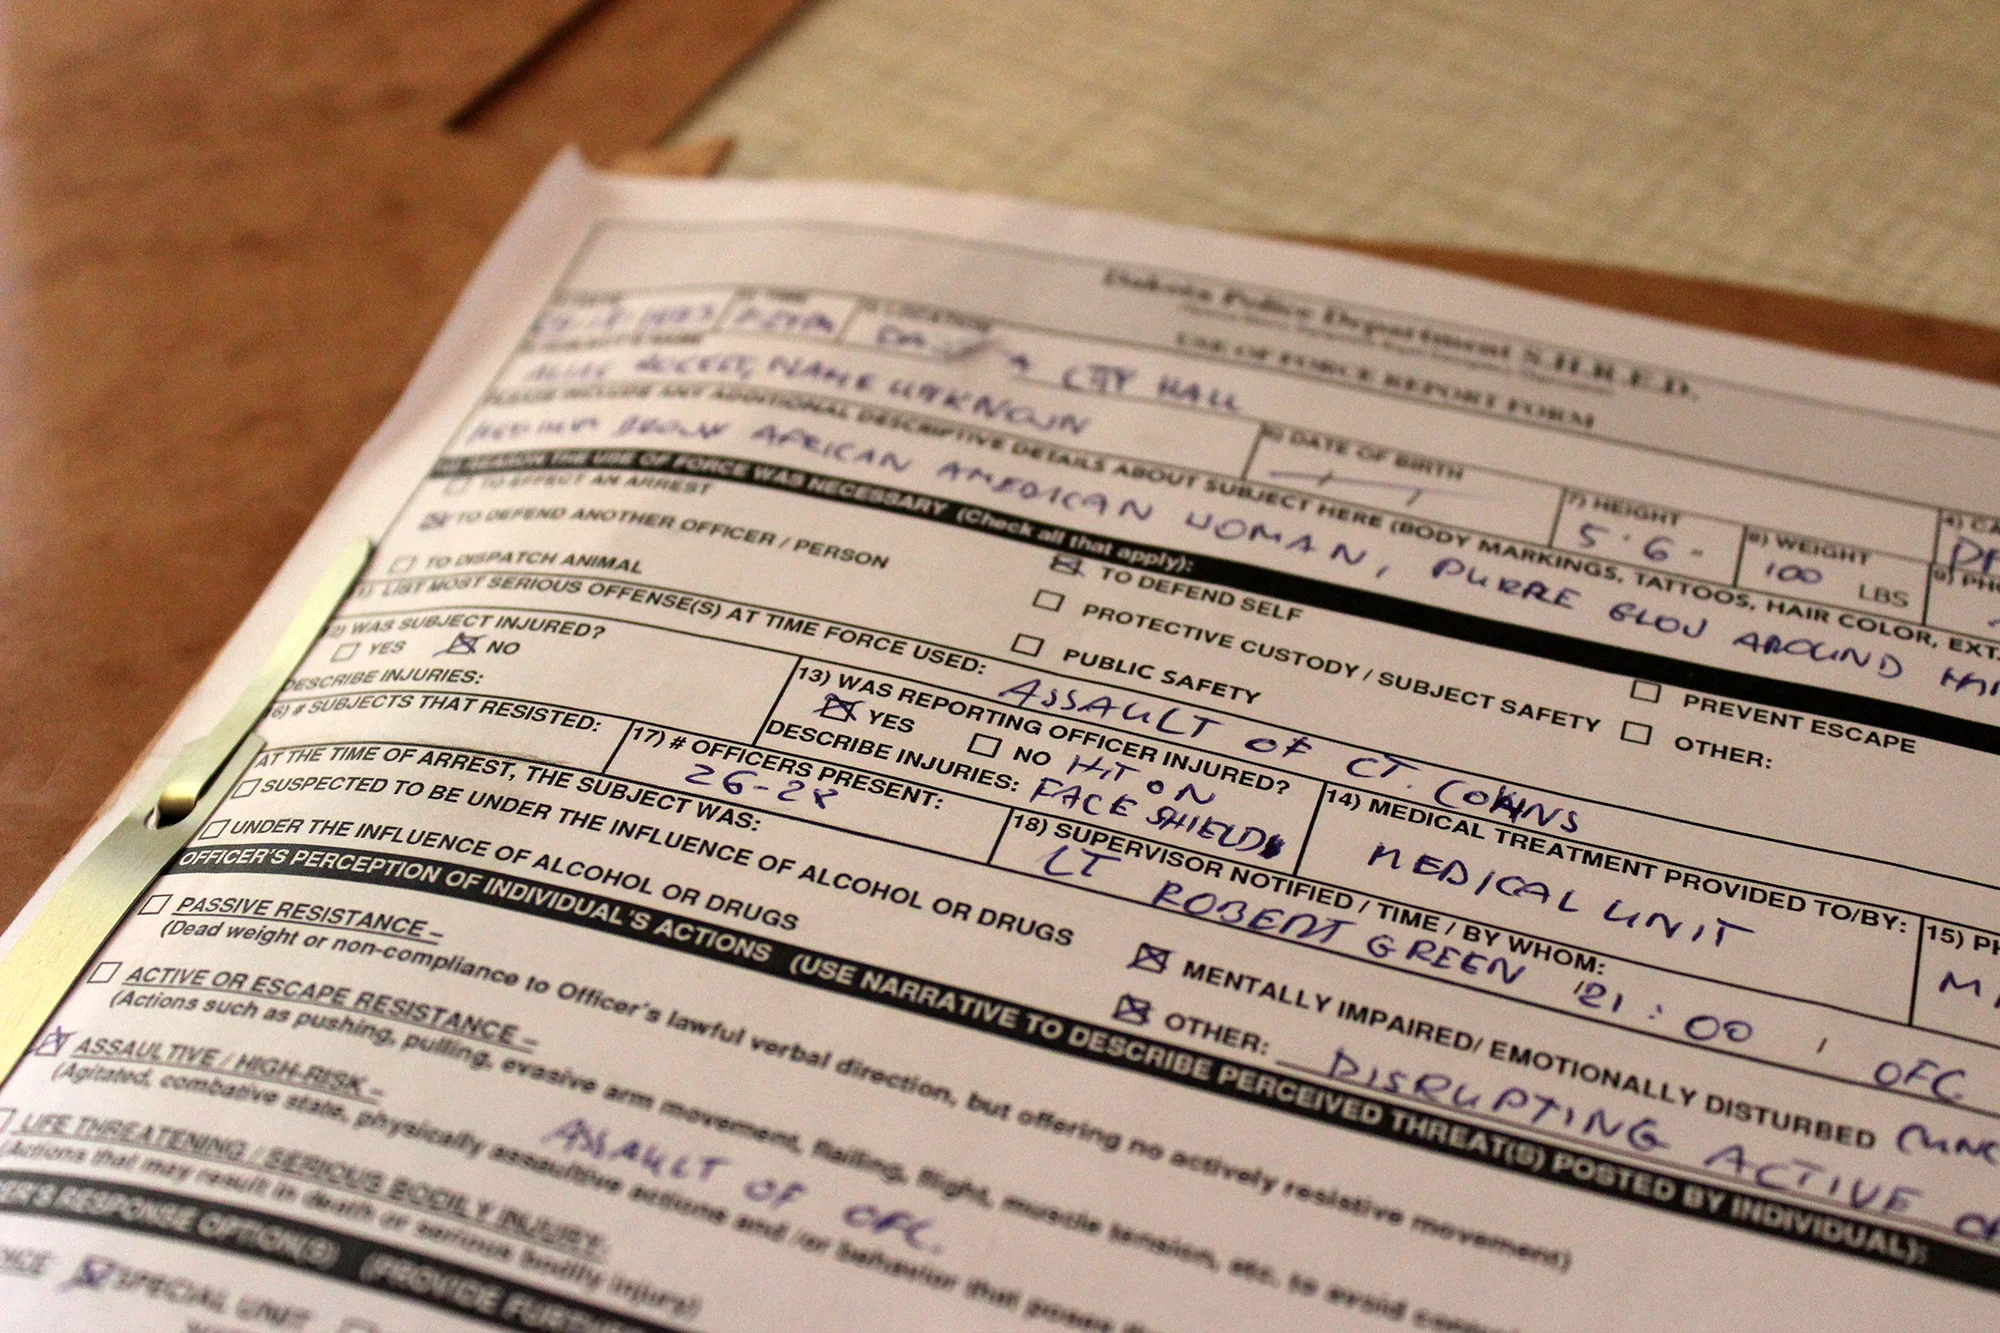 Dakota Police Department S.H.R.E.D.
USE OF FORCE REPORT FORM
LOCATION
CITY HALL
NAME UNKNOWN
6) DATE OF BIRTH
7) HEIGHT
5.6-
8) WEIGHT
100 LBS
PLEASE INCLUDE ANY ADDITIONAL DESCRIPTIVE DETAILS ABOUT SUBJECT HERE (BODY MARKINGS, TATTOOS, HAIR COLOR, EXT.
MEDIUM BROWN AFRICAN AMERICAN WOMAN, PURPLE GLOW AROUND
REASON THE USE OF FORCE WAS NECESSARY (Check all that apply):
TO EFFECT AN ARREST
TO DEFEND SELF
PREVENT ESCAPE
TO DEFEND ANOTHER OFFICER / PERSON
PROTECTIVE CUSTODY / SUBJECT SAFETY
OTHER:
TO DISPATCH ANIMAL
PUBLIC SAFETY
LIST MOST SERIOUS OFFENSE(S) AT TIME FORCE USED: ASSAULT OF CT.
WAS SUBJECT INJURED?
YES NO
DESCRIBE INJURIES:
13) WAS REPORTING OFFICER INJURED?
YES NO
DESCRIBE INJURIES: HIT ON
FACE SHIELD
14) MEDICAL TREATMENT PROVIDED TO/BY:
MEDICAL UNIT
15)
6) # SUBJECTS THAT RESISTED:
17) # OFFICERS PRESENT:
26-28
18) SUPERVISOR NOTIFIED / TIME / BY WHOM:
LT ROBERT GREEN /21:00 / OFC.
AT THE TIME OF ARREST, THE SUBJECT WAS:
SUSPECTED TO BE UNDER THE INFLUENCE OF ALCOHOL OR DRUGS
MENTALLY IMPAIRED/ EMOTIONALLY DISTURBED
UNDER THE INFLUENCE OF ALCOHOL OR DRUGS
OTHER: DISRUPTING ACTIVE
OFFICER'S PERCEPTION OF INDIVIDUAL'S ACTIONS (USE NARRATIVE TO DESCRIBE PERCEIVED THREAT(S) POSTED BY INDIVIDUAL):
PASSIVE RESISTANCE –
(Dead weight or non-compliance to Officer's lawful verbal direction, but offering no actively resistive movement)
ACTIVE OR ESCAPE RESISTANCE –
(Actions such as pushing, pulling, evasive arm movement, flailing, flight, muscle tension, etc. to avoid
ASSAULTIVE / HIGH-RISK –
(Agitated, combative state, physically assaultive actions and /or behavior that poses
ASSAULT OF OFC.
LIFE THREATENING / SERIOUS BODILY INJURY:
(Actions that may result in death or serious bodily injury)
RESPONSE OPTION(S) (PROVIDE
SPECIAL UNIT